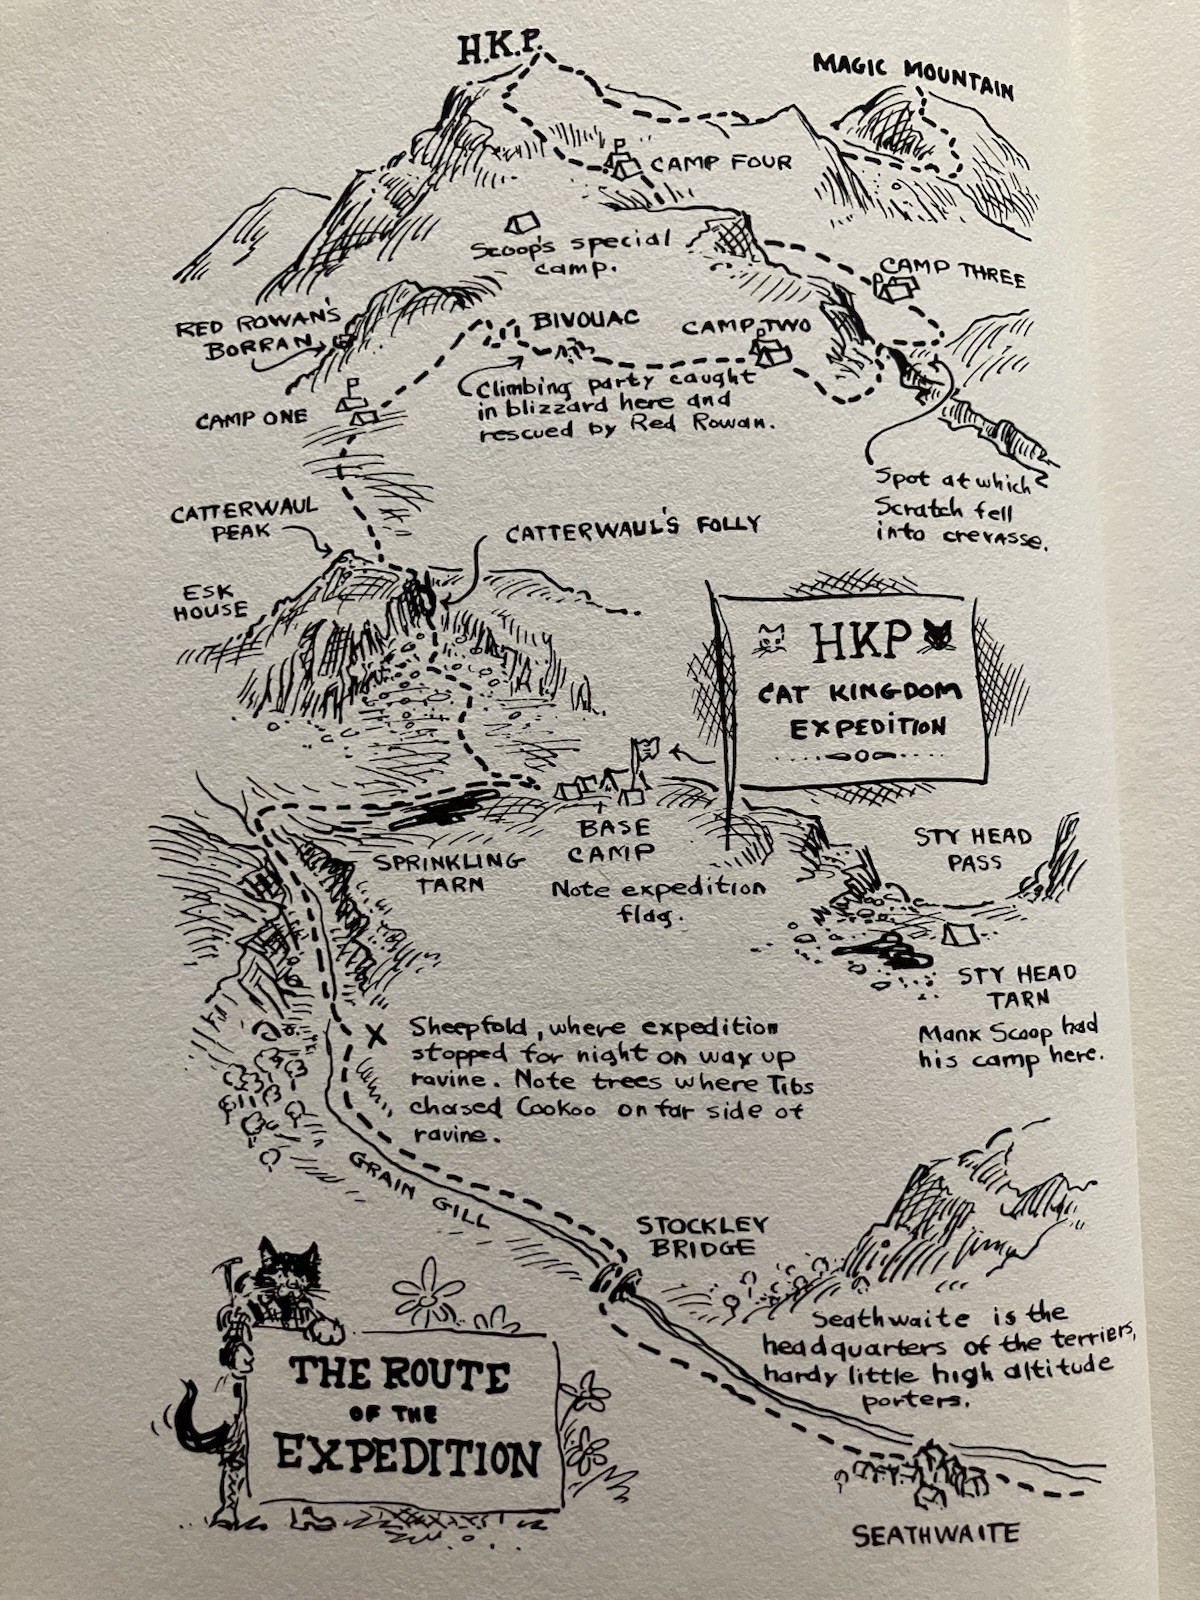 H.K.P.
MAGIC MOUNTAIN
CAMP FOUR
Scoop's special
camp.
CAMP THREE
RED ROWAN'S
BORRAN
BIVOUAC
CAMP TWO
Climbing party caught
in blizzard here and
rescued by Red Rowan.
CAMP ONE
Spot at which
Scratch fell
into crevasse.
CATTERWAUL
PEAK
CATTERWAUL'S FOLLY
ESK
HOUSE
HKP
CAT KINGDOM
EXPEDITION
BASE
CAMP
Note expedition
flag.
SPRINKLING
TARN
STY HEAD
PASS
STY HEAD
TARN
Manx Scoop had
his camp here.
X
Sheepfold, where expedition
stopped for night on way up
ravine. Note trees where Tibs
chased Cookoo on far side of
ravine.
GRAIN GILL
STOCKLEY
BRIDGE
Seathwaite is the
headquarters of the terriers,
hardy little high altitude
porters.
THE ROUTE
OF THE
EXPEDITION
SEATHWAITE